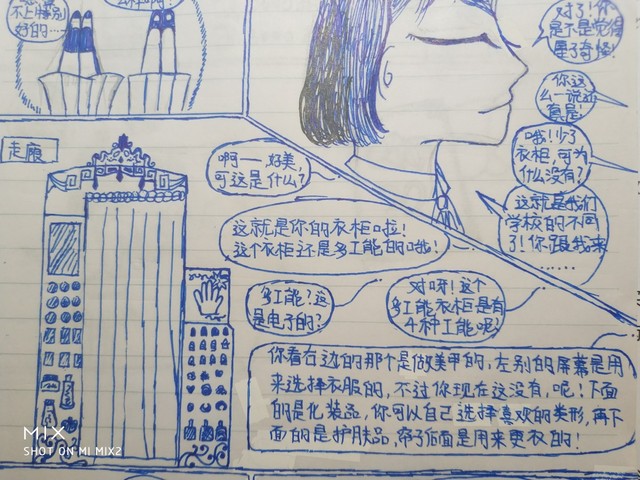 不上特别
好的…
对了!你
是不是觉得
屋子奇怪!
你这
么一说还
真是!
哦!少了
衣柜,可为
什么没有?
这就是我们
学校的不同
了!你跟我来
……
走廊
啊——好美,
可这是什么?
这就是你的衣柜啦!
这个衣柜还是多工能的哦!
多工能?这
是电子的?
对呀!这个
多工能衣柜是有
4种工能呢?
你看右边的那个是做美甲的,左别的屏幕是用
来选择衣服的,不过你现在这没有,呢!下面
的是化装品,你可以自己选择喜欢的类形,再下
面的是护肤品,帘子后面是用来更衣的!
MIX
SHOT ON MI MIX2